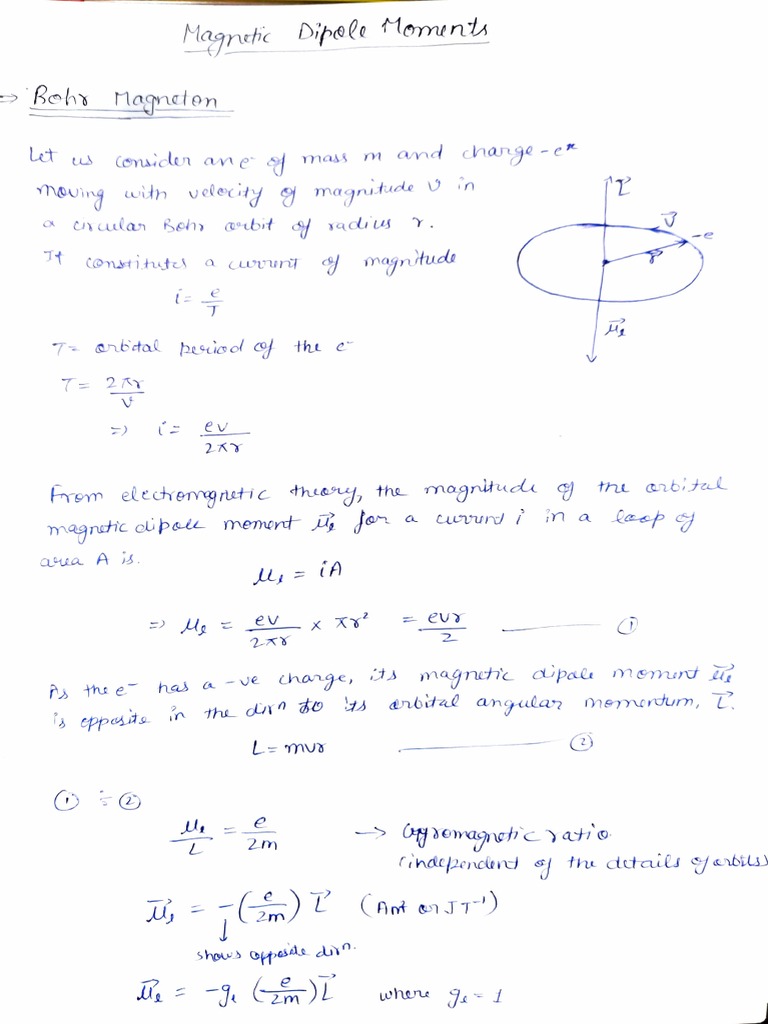 Magnetic Dipole Moments
⇒ Bohr Magneton
Let us consider an e⁻ of mass m and charge -e
moving with velocity of magnitude v in
a circular Bohr orbit of radius r.
It constitutes a current of magnitude
i = e/T
T = orbital period of the e⁻
T = 2πr/v
⇒ i = ev/2πr
L⃗
v⃗
-e
r⃗
μ⃗ₗ
From electromgnetic theory, the magnitude of the orbital
magnetic dipole moment μ⃗ₗ for a current i in a loop of
area A is.
μₗ = iA
⇒ μₗ = ev/2πr × πr² = evr/2 ——— ①
As the e⁻ has a -ve charge, its magnetic dipole moment μ⃗ₗ
is opposite in the dirn to its orbital angular momentum, L⃗.
L = mvr ——— ②
① ÷ ②
μₗ/L = e/2m → Gyromagnetic ratio
(independent of the details of orbits)
μ⃗ₗ = -(e/2m) L⃗ (Am² or JT⁻¹)
↓
shows opposite dirn.
μ⃗ₗ = -gₗ (e/2m) L⃗ where gₗ = 1